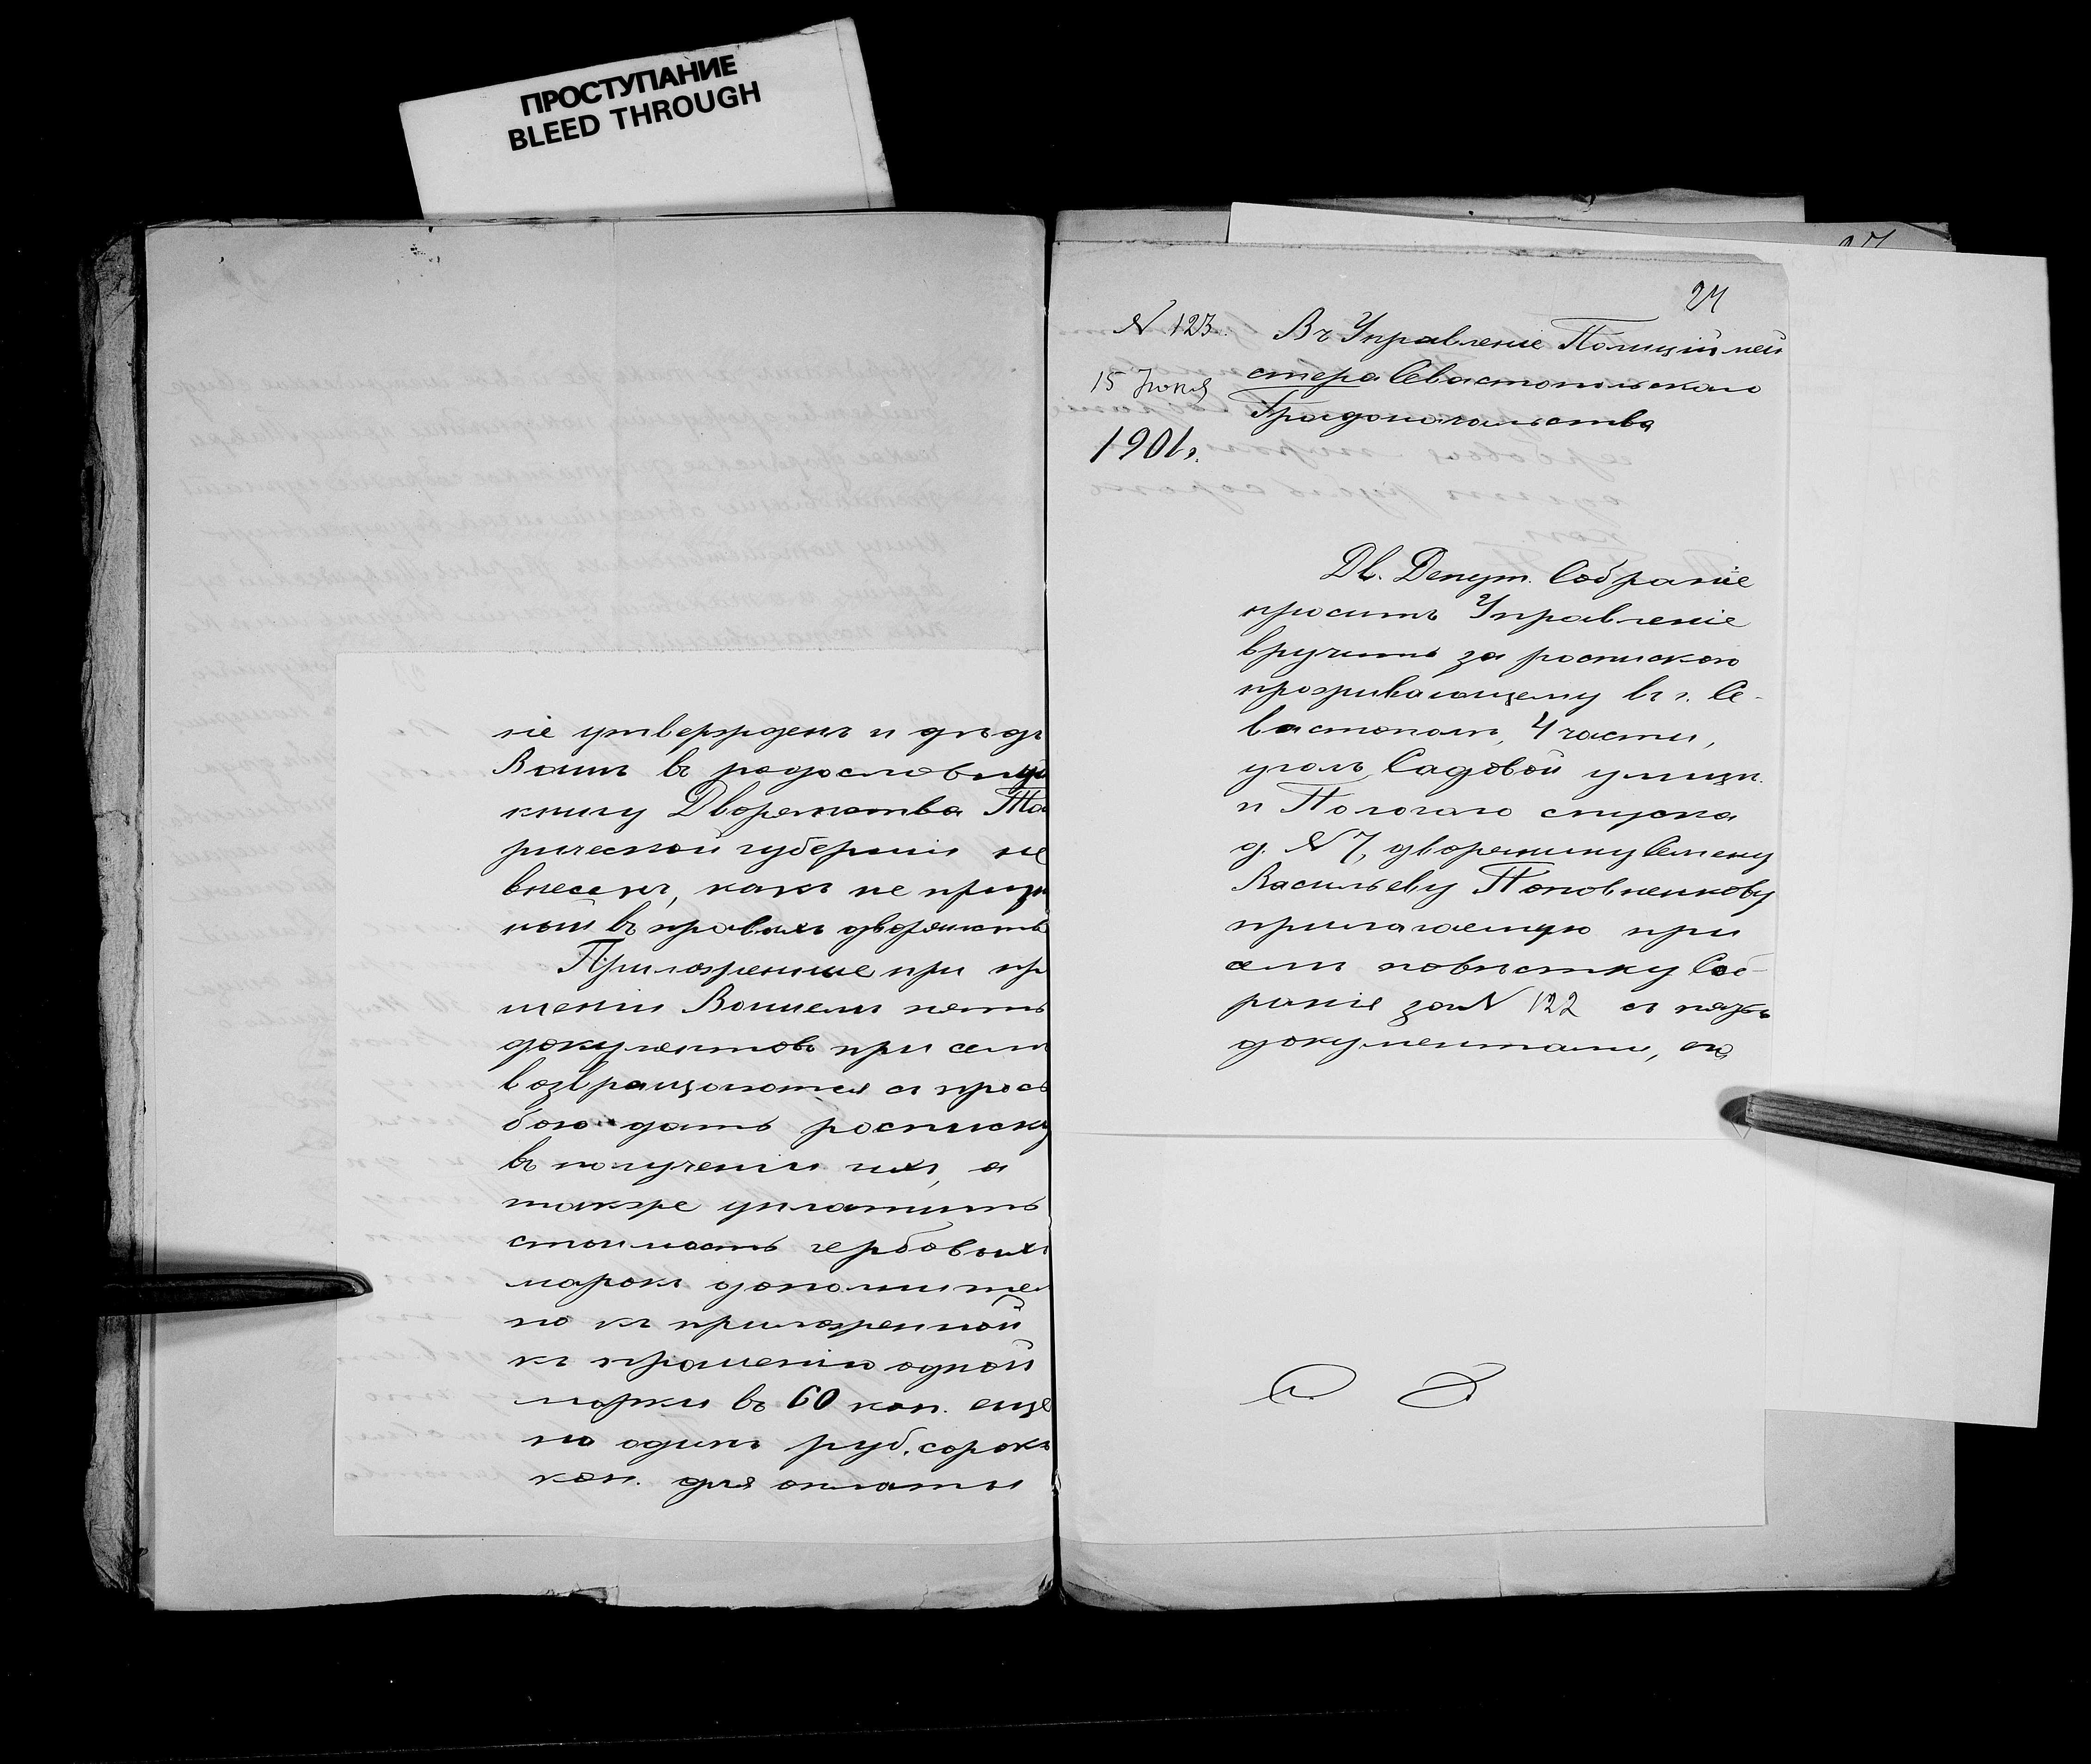 ПРОСТУПАНИЕ
BLEED THROUGH
ніе утвержденъ и дѣдъ
Вашъ въ родословную
книгу Дворянства Та
рической губерніи не
внесенъ, какъ не призн
ный въ правахъ дворянства
Приложенные при пр
шеніи Вашемъ пять
документовъ при семъ
возвращаются съ прось
бою дать росписку
въ полученіи ихъ, а
также уплатить
стоимость гербовыхъ
марокъ дополнител
но къ приложенной
къ прошенію одной
марки въ 60 коп. еще
на одинъ руб. сорокъ
коп. для оплаты
24
N 123.
15 Іюня
1901 г.
Въ Управленіе Полиціймей
стера Севастопольскаго
Градоначальства
Дв. Депут. Собраніе
проситъ Управленіе
вручить за роспискою
проживающему въ г. Се-
вастополѣ, 4 части,
уголъ Садовой улицы
и Пологаго спуска
д. N 7, дворянину Семену
Васильеву Поповниченкову
прилагаемую при
семъ повѣстку Соб-
ранія за N 122 съ
документами, его